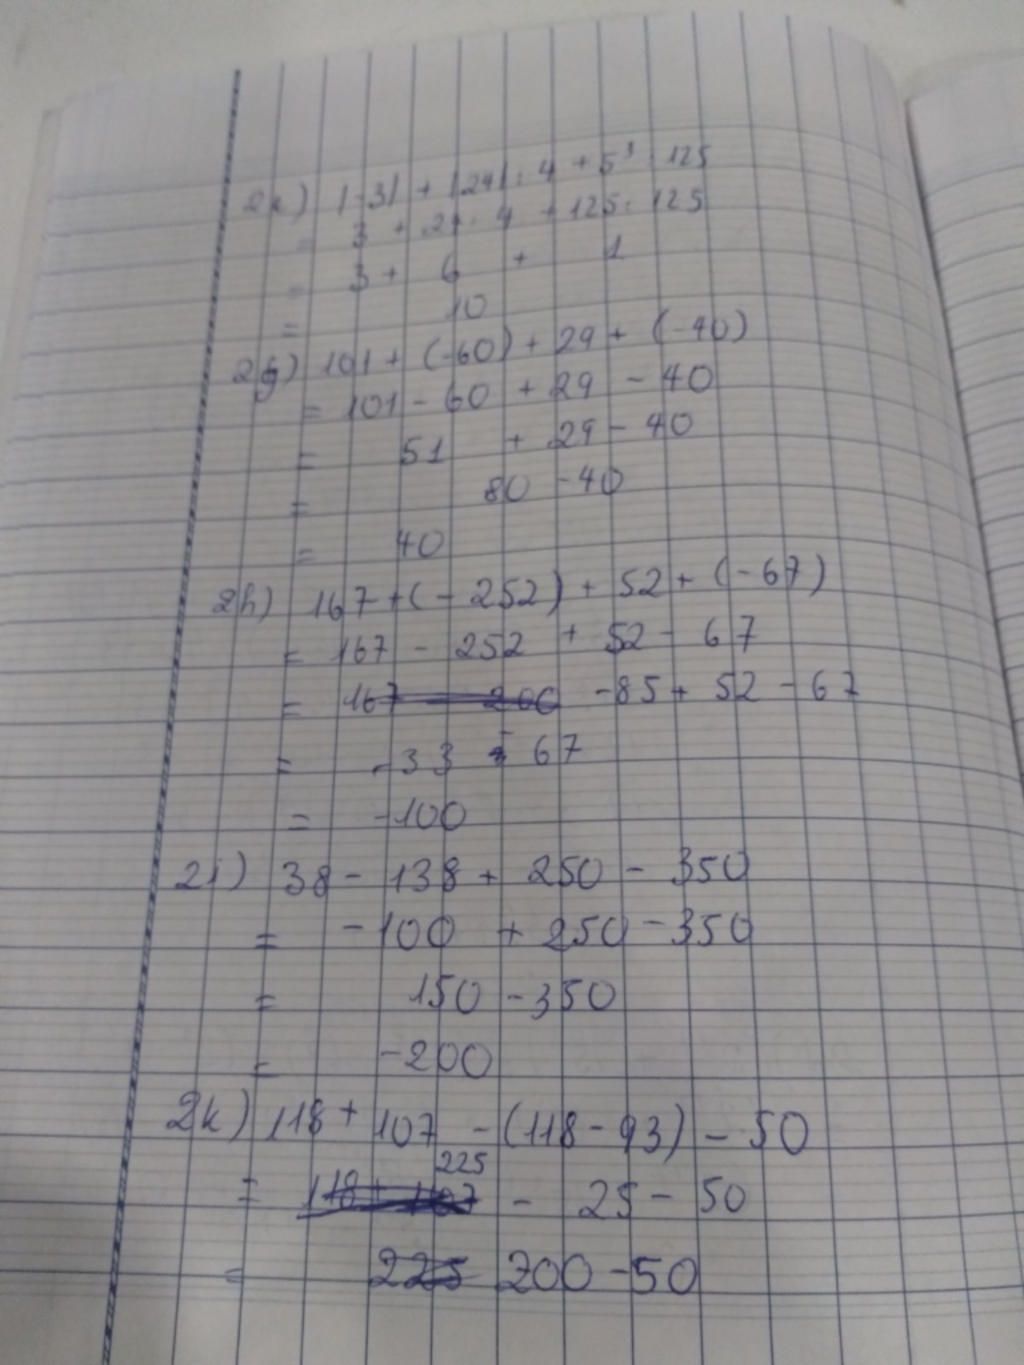 2e) |-3| + |24| : 4 + 5³ : 125
= 3 + 24 : 4 + 125 : 125
= 3 + 6 + 1
= 10
2g) 101 + (-60) + 29 + (-40)
= 101 - 60 + 29 - 40
= 51 + 29 - 40
= 80 - 40
= 40
2h) 167 + (-252) + 52 + (-67)
= 167 - 252 + 52 - 67
= 167 - 200 -85 + 52 - 67
= -33 - 67
= -100
2i) 38 - 138 + 250 - 350
= -100 + 250 - 350
= 150 - 350
= -200
2k) 118 + 107 - (118 - 93) - 50
225
= 118 + 107 - 25 - 50
= 225 200 - 50